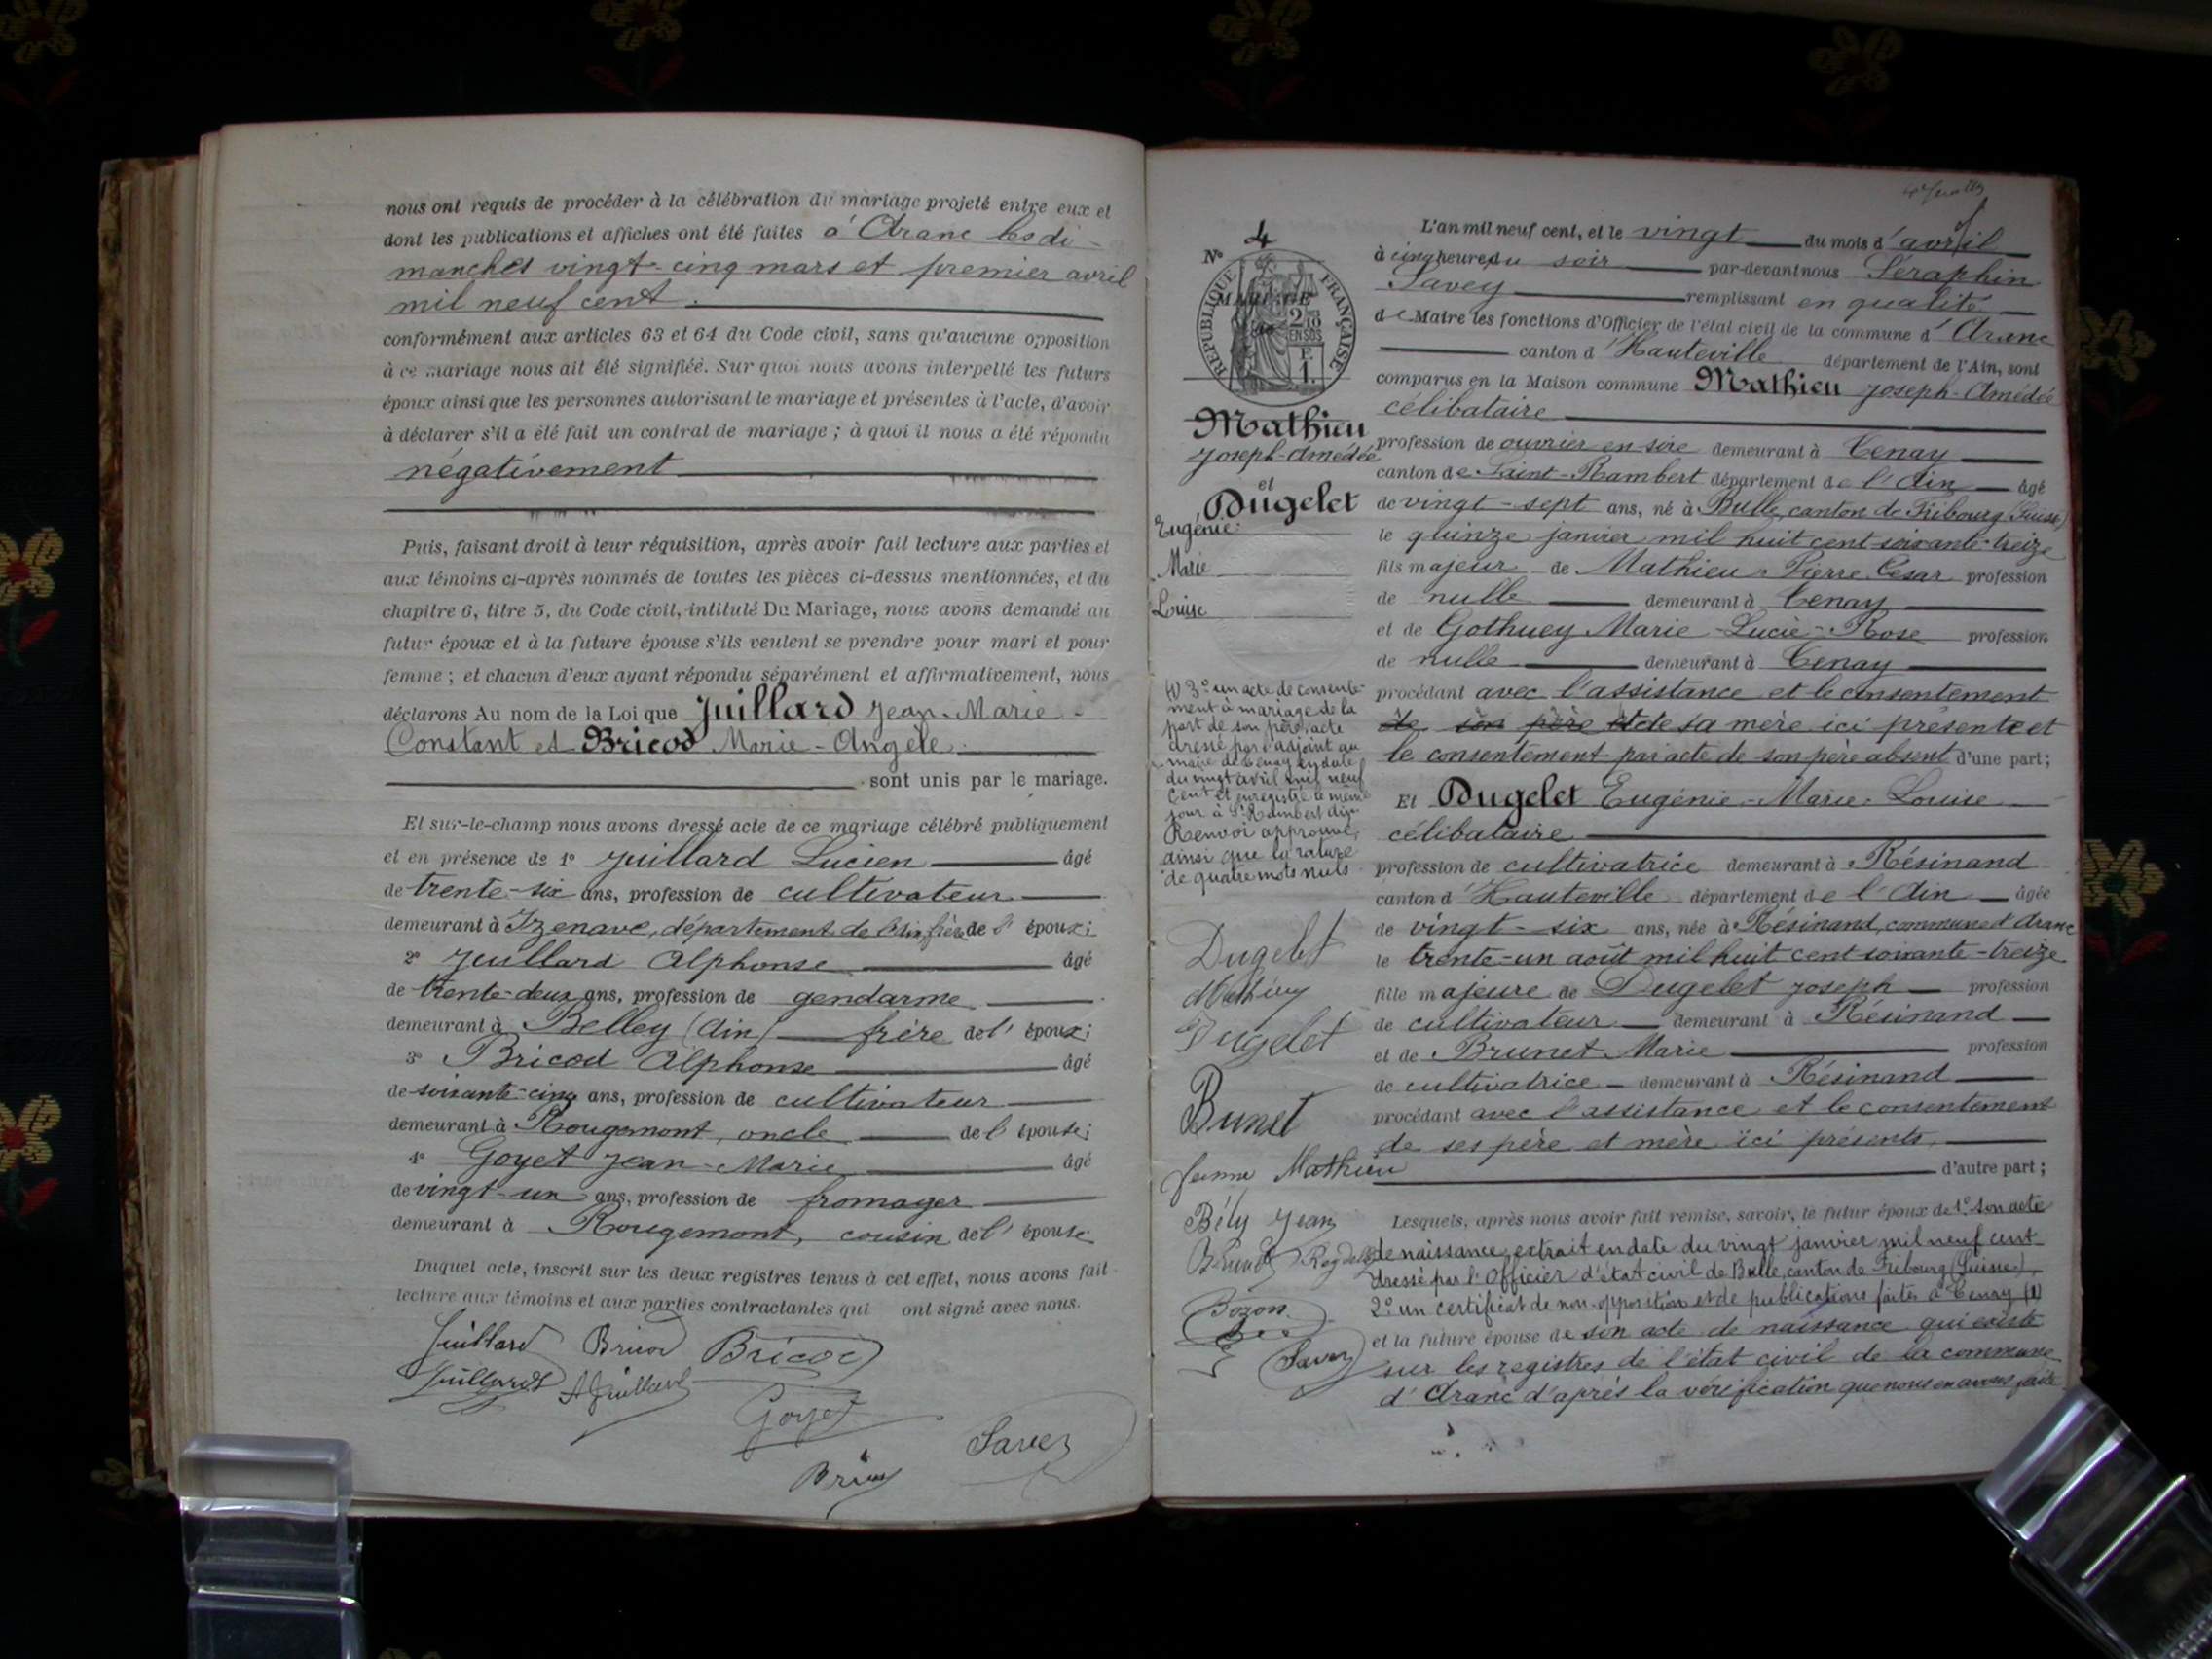 nous ont requis de procéder à la célébration du mariage projeté entre eux et
dont les publications et affiches ont été faites à Aranc les di-
manches vingt-cinq mars et premier avril
mil neuf cent.
conformément aux articles 63 et 64 du Code civil, sans qu'aucune opposition
à ce mariage nous ait été signifiée. Sur quoi nous avons interpellé les futurs
époux ainsi que les personnes autorisant le mariage et présentes à l'acte, d'avoir
à déclarer s'il a été fait un contrat de mariage ; à quoi il nous a été répondu
négativement
Puis, faisant droit à leur réquisition, après avoir fait lecture aux parties et
aux témoins ci-après nommés de toutes les pièces ci-dessus mentionnées, et du
chapitre 6, titre 5, du Code civil, intitulé Du Mariage, nous avons demandé au
futur époux et à la future épouse s'ils veulent se prendre pour mari et pour
femme ; et chacun d'eux ayant répondu séparément et affirmativement, nous
déclarons Au nom de la Loi que Juillard Jean-Marie-
Constant et Bricod Marie-Angèle.
sont unis par le mariage.
Et sur-le-champ nous avons dressé acte de ce mariage célébré publiquement
et en présence de 1° Juillard Lucien âgé
de trente-six ans, profession de cultivateur
demeurant à Izenave, département de l'Ain, frère de l' époux;
2° Juillard Alphonse âgé
de trente-deux ans, profession de gendarme
demeurant à Belley (Ain) frère de l' époux;
3° Bricod Alphonse âgé
de soixante-cinq ans, profession de cultivateur
demeurant à Rougemont, oncle de l' épouse;
4° Goyet Jean-Marie âgé
de vingt-un ans, profession de fromager
demeurant à Rougemont, cousin de l' épouse
Duquel acte, inscrit sur les deux registres tenus à cet effet, nous avons fait
lecture aux témoins et aux parties contractantes qui ont signé avec nous.
Juillard Bricod Bricod
Juillard A Juillard
Goyet
Savey
N° 4
RÉPUBLIQUE FRANÇAISE
MARIAGE
2/10
EN SUS
F.
1.
Mathieu
Joseph-Amédée
et
Dugelet
Eugénie-
Marie
Louise
(1) 3° un acte de consente-
ment à mariage de la
part de son père, acte
dressé par l'adjoint au
maire de Tenay en date
du vingt avril mil neuf
cent et enregistré le même
jour à St Rambert Ain
Renvoi approuvé,
ainsi que la rature
de quatre mots nuls
Dugelet
Mathieu
Dugelet
Bunet
Jeanne Mathieu
Bély Jean
Bozon
Savey
L'an mil neuf cent, et le vingt du mois d'avril
à cinq heures du soir par-devant nous Séraphin
Savey remplissant en qualité
de Maire les fonctions d'Officier de l'état civil de la commune d' Aranc
canton d' Hauteville département de l'Ain, sont
comparus en la Maison commune Mathieu Joseph-Amédée
célibataire
profession de ouvrier en soie demeurant à Tenay
canton de Saint-Rambert département de l'Ain âgé
de vingt-sept ans, né à Bulle, canton de Fribourg (Suisse)
le quinze janvier mil huit cent soixante-treize
fils majeur de Mathieu Pierre César profession
de nulle demeurant à Tenay
et de Gothuey Marie-Lucie-Rose profession
de nulle demeurant à Tenay
procédant avec l'assistance et le consentement
de son père et de sa mère ici présente et
le consentement par acte de son père absent d'une part;
Et Dugelet Eugénie-Marie-Louise
célibataire
profession de cultivatrice demeurant à Résinand
canton d' Hauteville département de l'Ain âgée
de vingt-six ans, née à Résinand, commune d'Aranc
le trente-un août mil huit cent soixante-treize
fille majeure de Dugelet Joseph profession
de cultivateur demeurant à Résinand
et de Brunet Marie profession
de cultivatrice demeurant à Résinand
procédant avec l'assistance et le consentement
de ses père et mère ici présents.
d'autre part ;
Lesquels, après nous avoir fait remise, savoir, le futur époux de 1° son acte
de naissance, extrait en date du vingt janvier mil neuf cent
dressé par l'Officier d'état civil de Bulle, canton de Fribourg (Suisse),
2° un certificat de non-opposition et de publications faites à Tenay (1)
et la future épouse de son acte de naissance qui existe
sur les registres de l'état civil de la commune
d'Aranc d'après la vérification que nous en avons faite